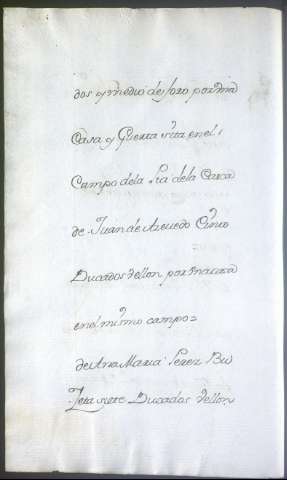 dos y medio de foro por una
Casa y Guerta sita en el
Campo de la Sta de la Cerca
de Juan de Azevedo Cinco
Ducados Vellon por una casa
en el mismo campo=
de Ana Maria Perez Bu
Zeta siete Ducados Vellon